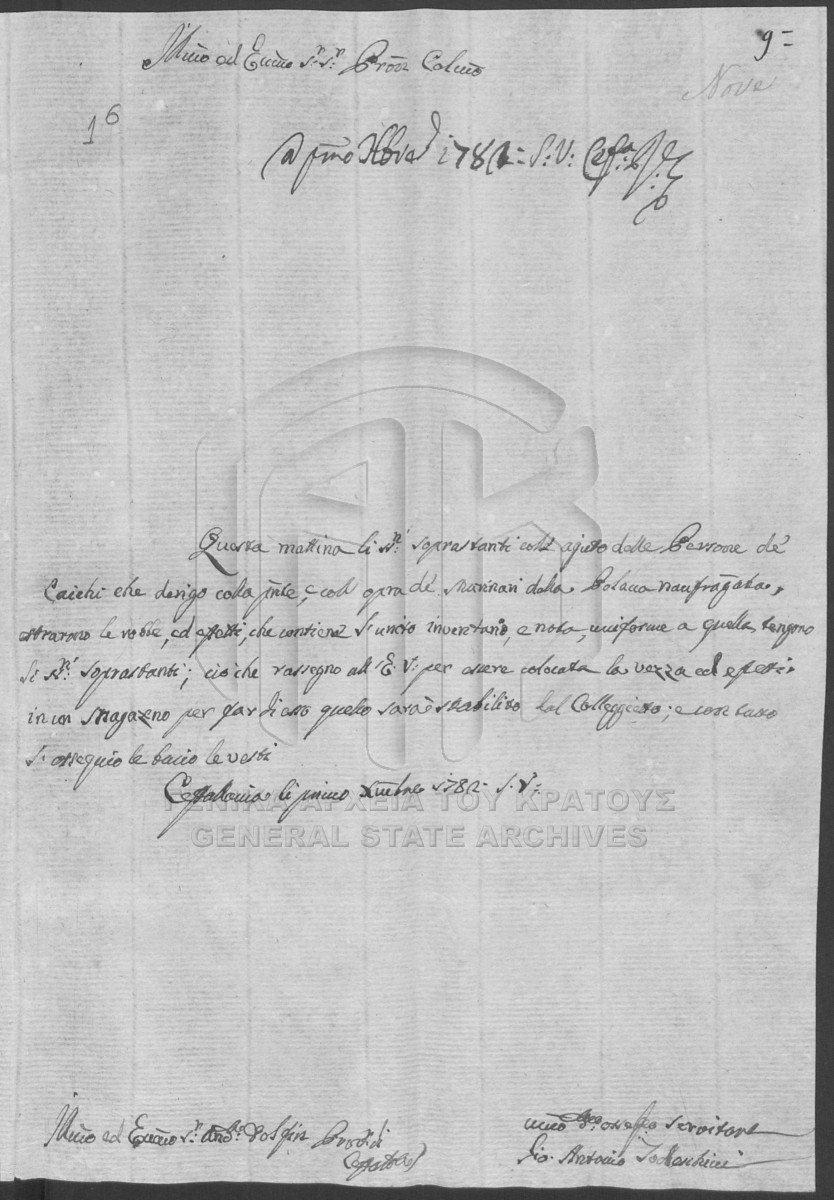 9=
Nove
Illmo ed Eccmo Sr Sr Pron Colmo
16
A pmo Xbre 1782= S:V: Cefa
Questa mattina li Sri Soprastanti coll ajuto delle Persone de'
Caichi che dirigo colla pnte, e coll opra de Marinari della Polaca naufragata,
estrarono le robbe, ed effetti, che contiene l'unito inventario, e nota, uniforme a quella tengono
li Sri Soprastanti; ciò che rassegno all' E. V: per essere colocata la vezza ed effetti
in un Magazeno per far di esso quello sarà stabilito dal Colleggietto; e con tutto
l'ossequio le bacio le vesti
Ceffalonia li primo Xmbre 1782 S. V:
ΓΕΝΙΚΑ ΑΡΧΕΙΑ ΤΟΥ ΚΡΑΤΟΥΣ
GENERAL STATE ARCHIVES
Illmo ed Eccmo Sr Provr di
Ceffalonia
Servitore
Gio. Antonio